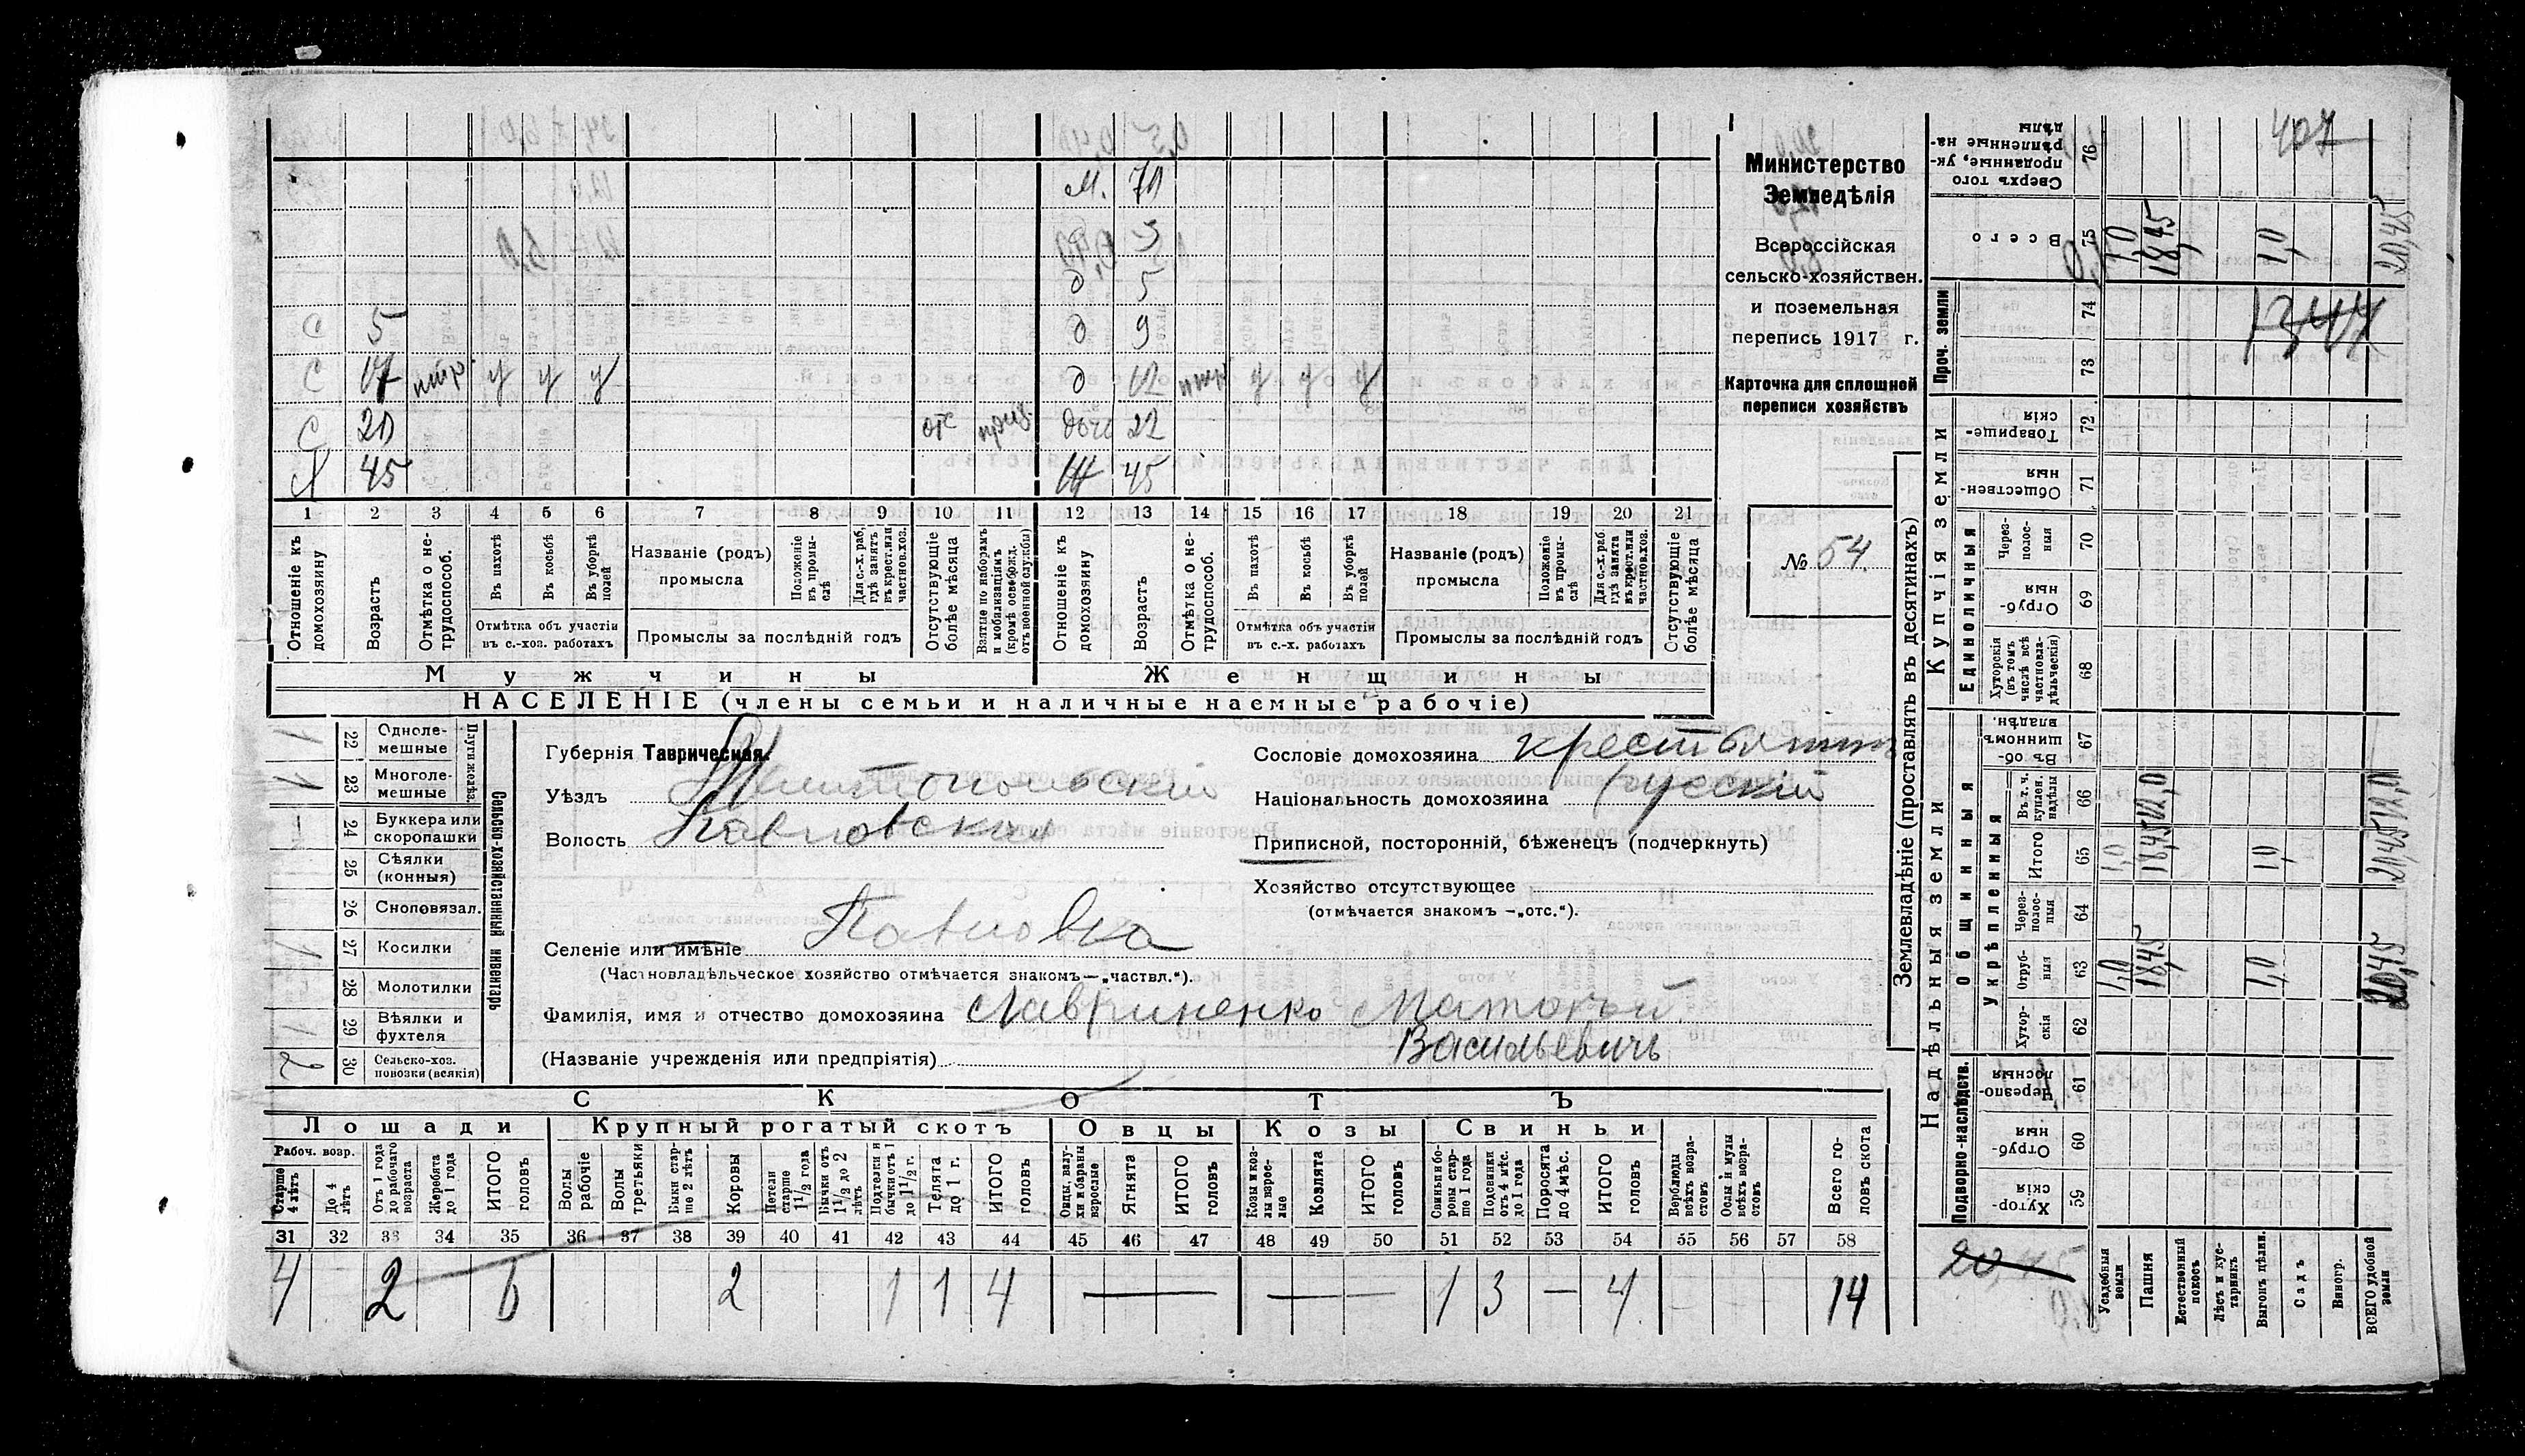 М. 70
д 3
д 5
С 5 д 9
С 17 нтр у у у д 12 нтр у у у
С 20 отс приз. дочь 22
Х 45 Ж 45
1 2 3 4 5 6 7 8 9 10 11 12 13 14 15 16 17 18 19 20 21
Отношеніе къ домохозяину
Возрастъ
Отмѣтка о не-трудоспособ.
Въ пахотѣ
Въ косьбѣ
Въ уборкѣ полей
Отмѣтка объ участіи
въ с.-хоз. работахъ
Названіе (родъ)
промысла
Положеніе въ промы-слѣ
Для с.-х. раб. гдѣ занятъ въ крест. или частнов. хоз.
Промыслы за послѣдній годъ
Отсутствующіе болѣе мѣсяца
Взятые по наборамъ и мобилизаціямъ (кромѣ освобожд. отъ военной службы)
Отношеніе къ домохозяину
Возрастъ
Отмѣтка о не-трудоспособ.
Въ пахотѣ
Въ косьбѣ
Въ уборкѣ полей
Отмѣтка объ участіи
въ с.-х. работахъ
Названіе (родъ)
промысла
Положеніе въ промы-слѣ
Для с.-х. раб. гдѣ занята въ крест. или частнов. хоз.
Промыслы за послѣдній годъ
Отсутствующіе болѣе мѣсяца
Мужчины Женщины
НАСЕЛЕНІЕ (члены семьи и наличные наемные рабочіе)
Министерство
Земледѣлія
Всероссійская
сельско-хозяйствен.
и поземельная
перепись 1917 г.
Карточка для сплошной
переписи хозяйствъ
№ 54.
Сельско-хозяйственный инвентарь
Плуги желѣз.
1 22 Одноле-мешные
1 23 Многоле-мешные
24 Буккера или скоропашки
25 Сѣялки (конныя)
26 Сноповязал.
1 27 Косилки
28 Молотилки
1 29 Вѣялки и фухтеля
2 30 Сельско-хоз. повозки (всякія)
Губернія Таврическая.
Уѣздъ Мелитопольскій
Волость Павловская
Селеніе или имѣніе Павловка
(Частновладѣльческое хозяйство отмѣчается знакомъ—„частвл.“).
Фамилія, имя и отчество домохозяина Лавриненко Матвѣй
(Названіе учрежденія или предпріятія) Васильевичъ
Сословіе домохозяина крестьянинъ
Національность домохозяина русскій
Приписной, посторонній, бѣженецъ (подчеркнуть)
Хозяйство отсутствующее
(отмѣчается знакомъ —„отс.“).
СКОТЪ
Лошади Крупный рогатый скотъ Овцы Козы Свиньи
Рабоч. возр.
Старше 4 лѣтъ
До 4 лѣтъ
Отъ 1 года до рабочаго возраста
Жеребята до 1 года
ИТОГО головъ
Волы рабочіе
Волы третьяки
Быки стар-ше 2 лѣтъ
Коровы
Нетели старше 1½ года
Бычки отъ 1½ до 2 лѣтъ
Подтелки и бычки отъ 1 до 1½ г.
Телята до 1 г.
ИТОГО головъ
Овцы, валу-хи и бараны взрослые
Ягнята
ИТОГО головъ
Козы и коз-лы взрос-лые
Козлята
ИТОГО головъ
Свиньи и бо-ровы стар-ше 1 года
Подсвинки отъ 4 мѣс. до 1 года
Поросята до 4 мѣс.
ИТОГО головъ
Верблюды всѣхъ возра-стовъ
Ослы и мулы всѣхъ возра-стовъ
Всего го-ловъ скота
31 32 33 34 35 36 37 38 39 40 41 42 43 44 45 46 47 48 49 50 51 52 53 54 55 56 57 58
4 2 — 6 2 1 1 4 — — 1 3 — 4 14
Землевладѣніе (проставлять въ десятинахъ)
Надѣльныя земли
Купчія земли
Проч. земли
Подворно-наслѣдств.
Общинныя
Укрѣпленныя
Единоличныя
Хутор-скія 59
Отруб-ныя 60
Черезпо-лосныя 61
Хутор-скія 62
Отруб-ныя 63
Через-полос-ныя 64
Итого 65
Въ т. ч. куплен. надѣлы 66
Въ об-щинномъ владѣн. 67
Хуторскія (въ томъ числѣ всѣ частновла-дѣльческія) 68
Отруб-ныя 69
Через-полос-ныя 70
Обществен-ныя 71
Товарище-скія 72
73
74
Всего 75
Сверхъ того проданные, ук-рѣпленные на-дѣлы 76
Усадебныя земли 1,0 1,0 1,0
Пашня 18,45 18,45 12,0 18,45
Естественный покосъ
Лѣсъ и кус-тарникъ
Выгонъ цѣлин. 1,0 1,0 1,0
Садъ
Виногр.
ВСЕГО удобной земли 20,45 20,45 12,0 20,45
20,45
407
1347